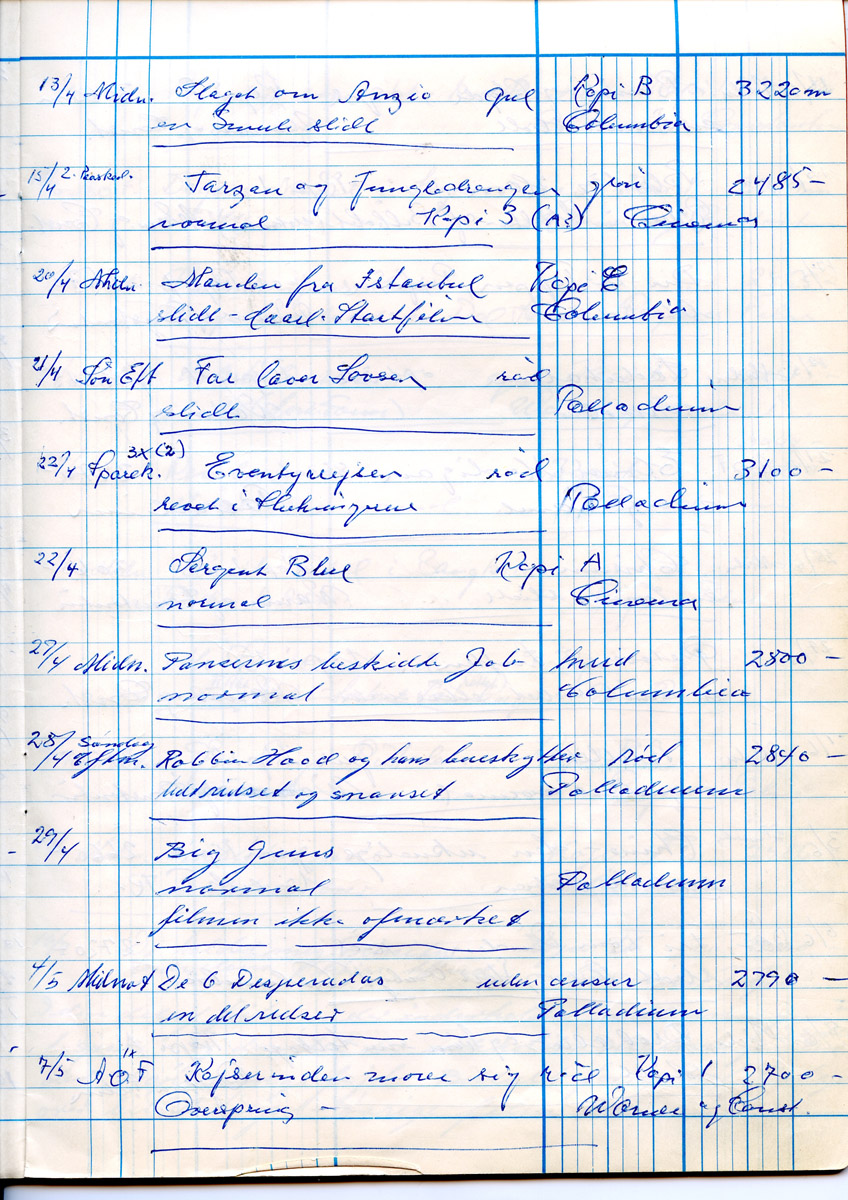 13/4 Midn. Slaget om Anzio gul Kopi B 3220m
en smule slidt Columbia
15/4 2. Paaskd. Tarzan og Jungledrengen grøn 2485 –
normal Kopi 3 (A3) Cinema
20/4 Midn. Manden fra Istanbul Kopi E
slidt – Startfilm Columbia
21/4 Søn Eft Far laver Sovsen rød
slidt Palladium
22/4 Sparek. 3x (2) Eventyrrejsen rød 3100 –
revet i Palladium
22/4 Sergent Blue Kopi A
normal Cinema
27/4 Midn. Pansernes beskidte Job hvid 2800 –
normal Columbia
28/4 Søndag Eftm. Robbin Hood og hans bueskytter rød 2840 –
helt ridset og snavset Palladium
29/4 Big Jims
normal Palladium
filmen ikke afmærket
4/5 Midnat De 6 Desperadas uden censur 2790 –
en del ridser Palladium
7/5 AOF 1x Kejserinden morer sig rød Kopi 1 2700 –
Overspring – Warner og Const.